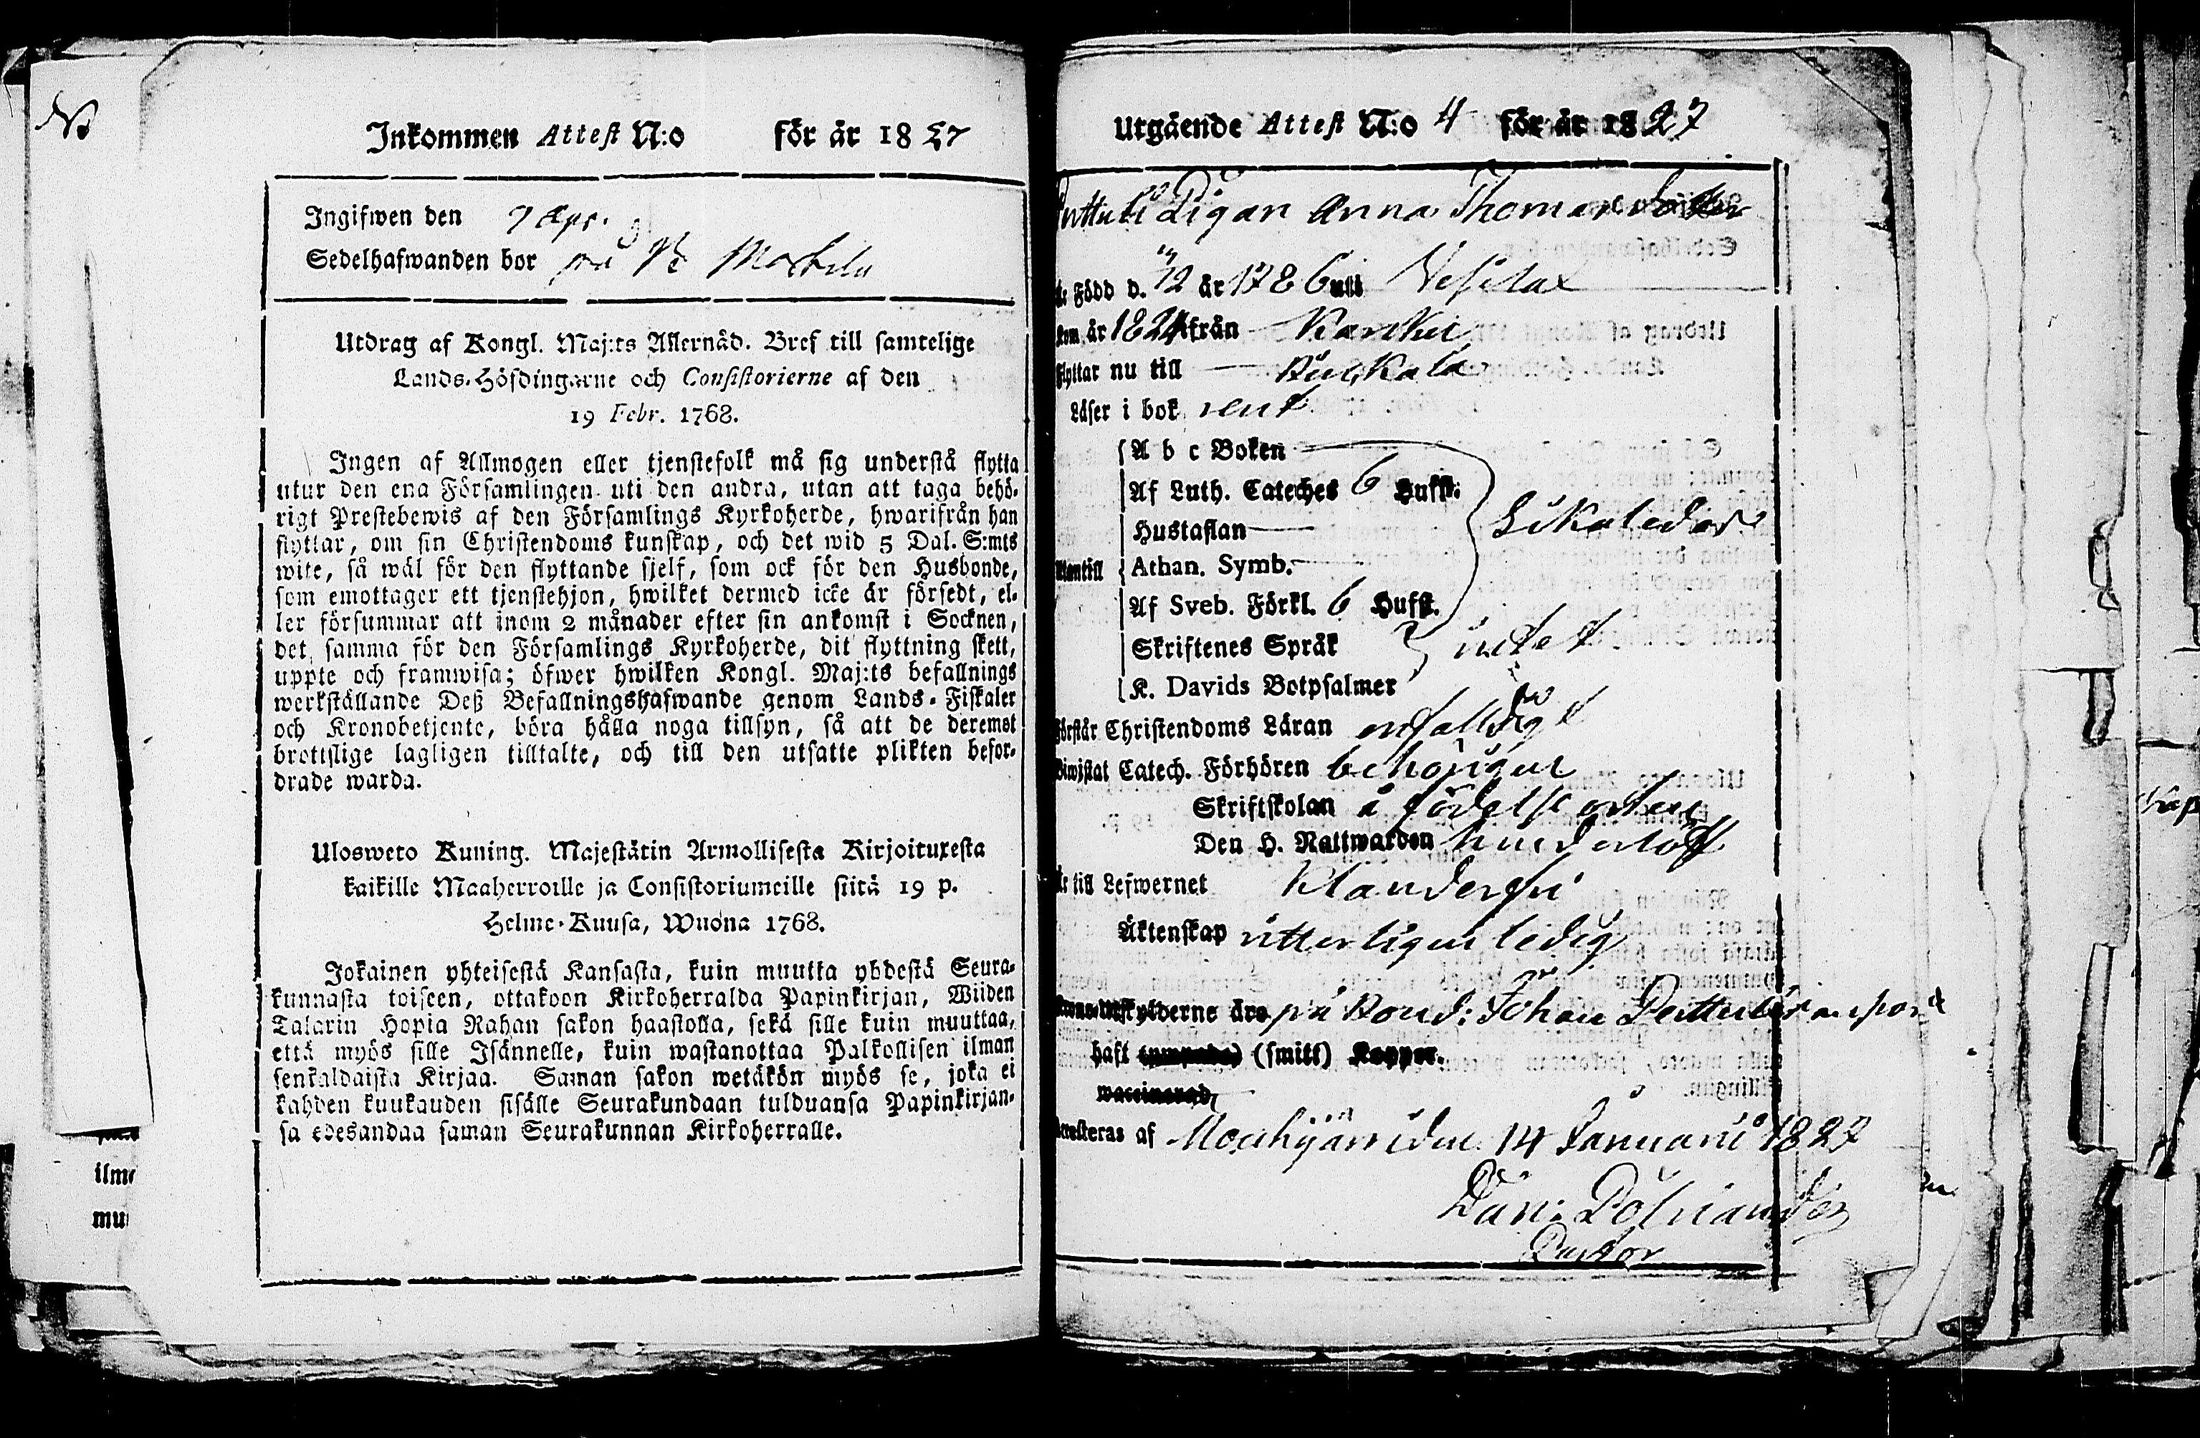 Inkommen Attest N:o för år 1827
Ingifwen den 7 Apr.
Sedelhafwanden bor på
Utdrag af Kongl. Maj:ts Allernåd. Bref till samtelige
Lands-Höfdingarne och Consistorierne af den
19 Febr. 1768.
Ingen af Allmogen eller tjenstefolk må sig understå flytta
utur den ena Församlingen uti den andra, utan att taga behö-
rigt Prestebewis af den Församlings Kyrkoherde, hwarifrån han
flyttar, om sin Christendoms kunskap, och det wid 5 Dal. S:mts
wite, så wäl för den flyttande sjelf, som ock för den Husbonde,
som emottager ett tjenstehjon, hwilket dermed icke är försedt, el-
ler försummar att inom 2 månader efter sin ankomst i Socknen,
det samma för den Församlings Kyrkoherde, dit flyttning skett,
uppte och framwisa; öfwer hwilken Kongl. Maj:ts befallnings
werkställande Deß Befallningshafwande genom Lands-Fiskaler
och Kronobetjente, böra hålla noga tillsyn, så att de deremot
brottslige lagligen tilltalte, och till den utsatte plikten befor-
drade warda.
Ulosweto Kuning. Majestätin Armollisesta Kirjoituxesta
kaikille Maaherroille ja Consistoriumeille siitä 19 p.
Helme-Kuusa, Wuona 1768.
Jokainen yhteisestä Kansasta, kuin muutta yhdestä Seura-
kunnasta toiseen, ottakoon Kirkoherralda Papinkirjan, Wiiden
Talarin Hopia Rahan sakon haastolla, sekä sille kuin muuttaa,
että myös sille Isännelle, kuin wastanottaa Palkollisen ilman
senkaldaista Kirjaa. Saman sakon wetäkön myös se, joka ei
kahden kuukauden sisälle Seurakundaan tulduansa Papinkirjan-
sa edesandaa saman Seurakunnan Kirkoherralle.
Utgående Attest N:o 4 för år 1827
Pigan Anna Thomasdotter
Född d. 12 år 1786 uti Vesilax
kom år 1824 från Karkku
flyttar nu till Kulsiala
Läser i bok rent
A b c Boken
Af Luth. Cateches 6 Hufst:
Hustaflan Likaledes
Utantill Athan. Symb.
Af Sveb. Förkl. 6 Hufst.
Skriftenes Språk intet
K. Davids Botpsalmer
Förstår Christendoms Läran enfaldigt
Biwistat Catech. Förhören behörigen
Skriftskolan å födelseorten
Den H. Nattwarden
Är till Lefwernet klanderfri
Äktenskap ledig
äro på Bond: Johan Perttulis
haft (smitt) Koppor.
waccinerad
Attesteras af Mouhijärvi den 14 Januarii 1827
Dan: Polviander
Pastor
ilma